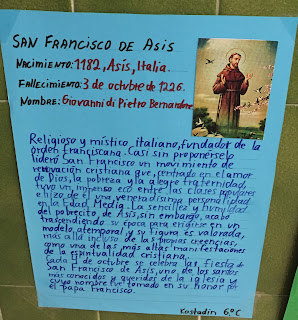 SAN FRANCISCO DE ASIS
NACIMIENTO: 1182, Asis, Italia.
FALLECIMIENTO: 3 de octubre de 1226.
NOMBRE: Giovanni di Pietro Bernardone
Religioso y místico italiano, fundador de la
orden franciscana. Casi sin proponerse lo
lideró San Francisco un movimiento de
renovación cristiana que, centrado en el amor
de Dios, la pobreza y la alegre fraternidad,
tuvo un inmenso eco entre las clases populares
e hizo de él una veneradísima personalidad
en la Edad Media. La sencillez y humildad
del pobrecito de Asís, sin embargo, acabó
trascendiendo su época para erigirse en un
modelo atemporal y su figura es valorada,
más allá incluso de las propias creencias,
como una de las más altas manifestaciones
de la espiritualidad cristiana.
Cada 3 de octubre se celebra las fiesta de
San Francisco de Asis, uno de los santos
más conocidos y queridos de la iglesia y
cuyo nombre fue tomado en su honor por
el papa Francisco.
Kostadin 6ºC